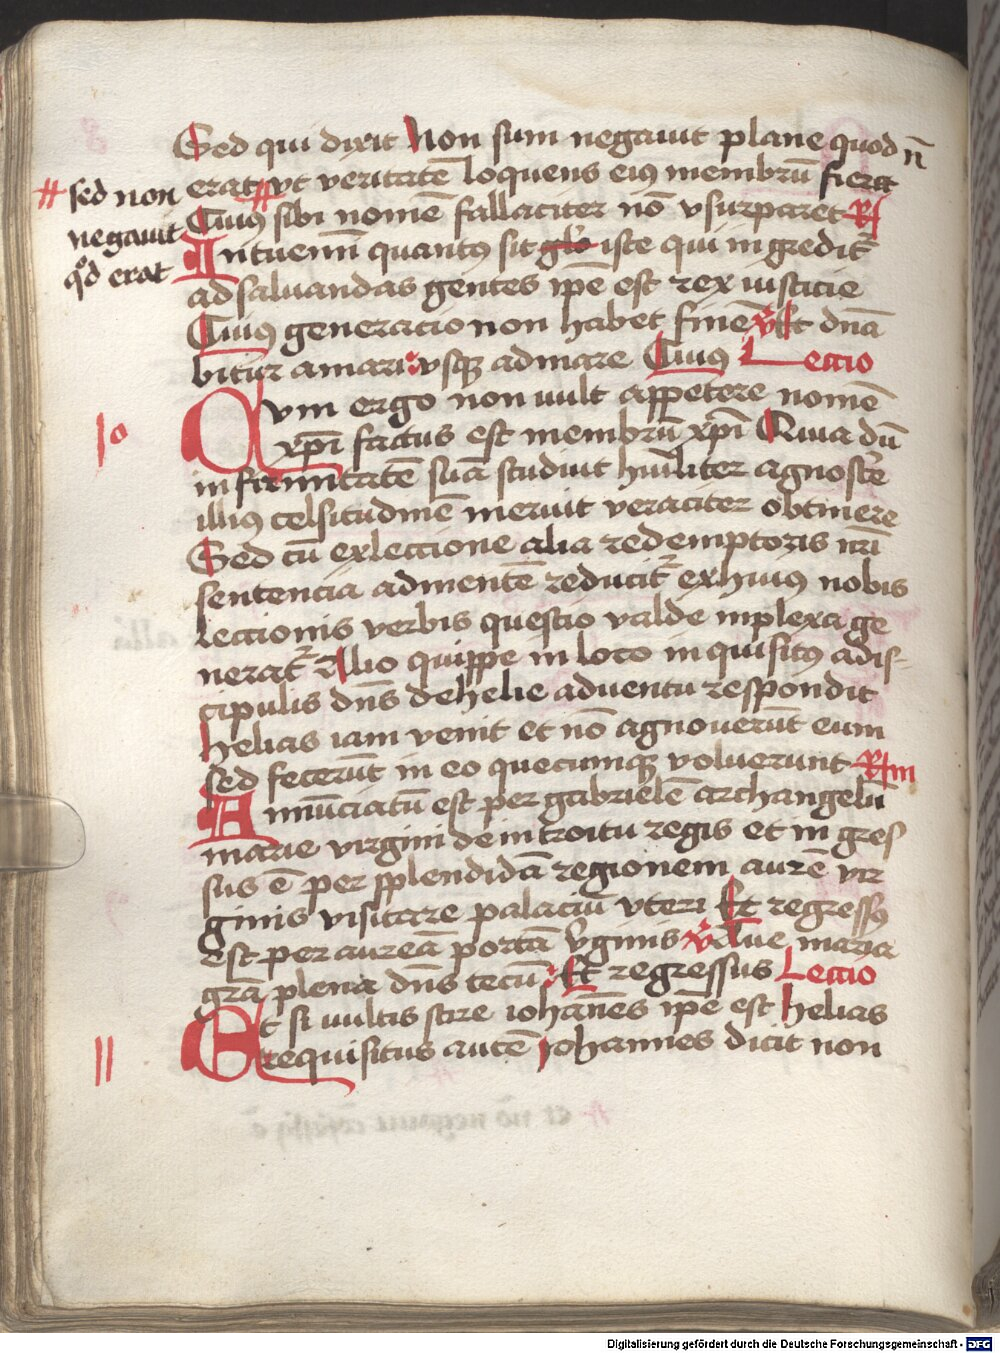 Sed qui dixit Non sum negauit plane quod n̄
erat # vt veritatē loquens eiꝰ membrū fieret
# sed non
negauit
qd̕ erat
Cuiꝰ sibi nomē fallaciter nō vsurparet R̸
Intuemī quantꝰ sit glo iste qui ingredit̕
ad saluandas gentes ip̄e est rex iusticie
Cuiꝰ generacio non habet finē v̕ Et dn̄a
bitur a mari : vsqꝫ ad mare Cuiꝰ Lectio
10
Qvm ergo non uult appetere nomē
xp̄i factus est membrū xp̄i Quia dū
infirmitatē suā studuit hūiliter agnosce̕
illiꝰ celsitudinē meruit veraciter obtinere
Sed cū ex leccione alia redemptoris nr̄i
sentencia ad mentē reducit̕ ex huius nobis
leccionis verbis questio valde inplexa ge
nerat̕ Alio quippe in loco inquisitꝰ a dis-
cipulis dn̄s de helie aduentu respondit
helias iam venit et nō agnouerūt eum
sed fecerūt in eo quecumqꝫ voluerunt R̸m
Annūciatū est per gabrielē archangelū
marie virgini de introitu regis et ingres
sus ē per splendidā regionem aurē vir
ginis visitare palaciū vteri Et regressꝰ
est per aureā portā v̕ginis v̕ Aue maria
grā plena dn̄s tecū : Et regressus Lectio
11
Et si uultis scire iohānes ip̄e est helias
requisitus autē iohannes dicit non
Digitalisierung gefördert durch die Deutsche Forschungsgemeinschaft - DFG